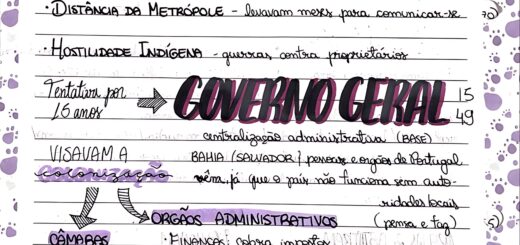 · DISTÂNCIA DA METRÓPOLE - levavam meses para comunicar-se
· HOSTILIDADE INDÍGENA - guerras contra proprietários
Tentativa por 15 anos → GOVERNO GERAL 1549
centralização administrativa (BASE)
VISAVAM A colonização
BAHIA (SALVADOR) pessoas e orgãos de Portugal
vêm, já que o país não funciona sem auto-
ridades locais
ORGÃOS ADMINISTRATIVOS (pensa e faz)
CÂMARAS
· FINANÇAS: cobra impostos